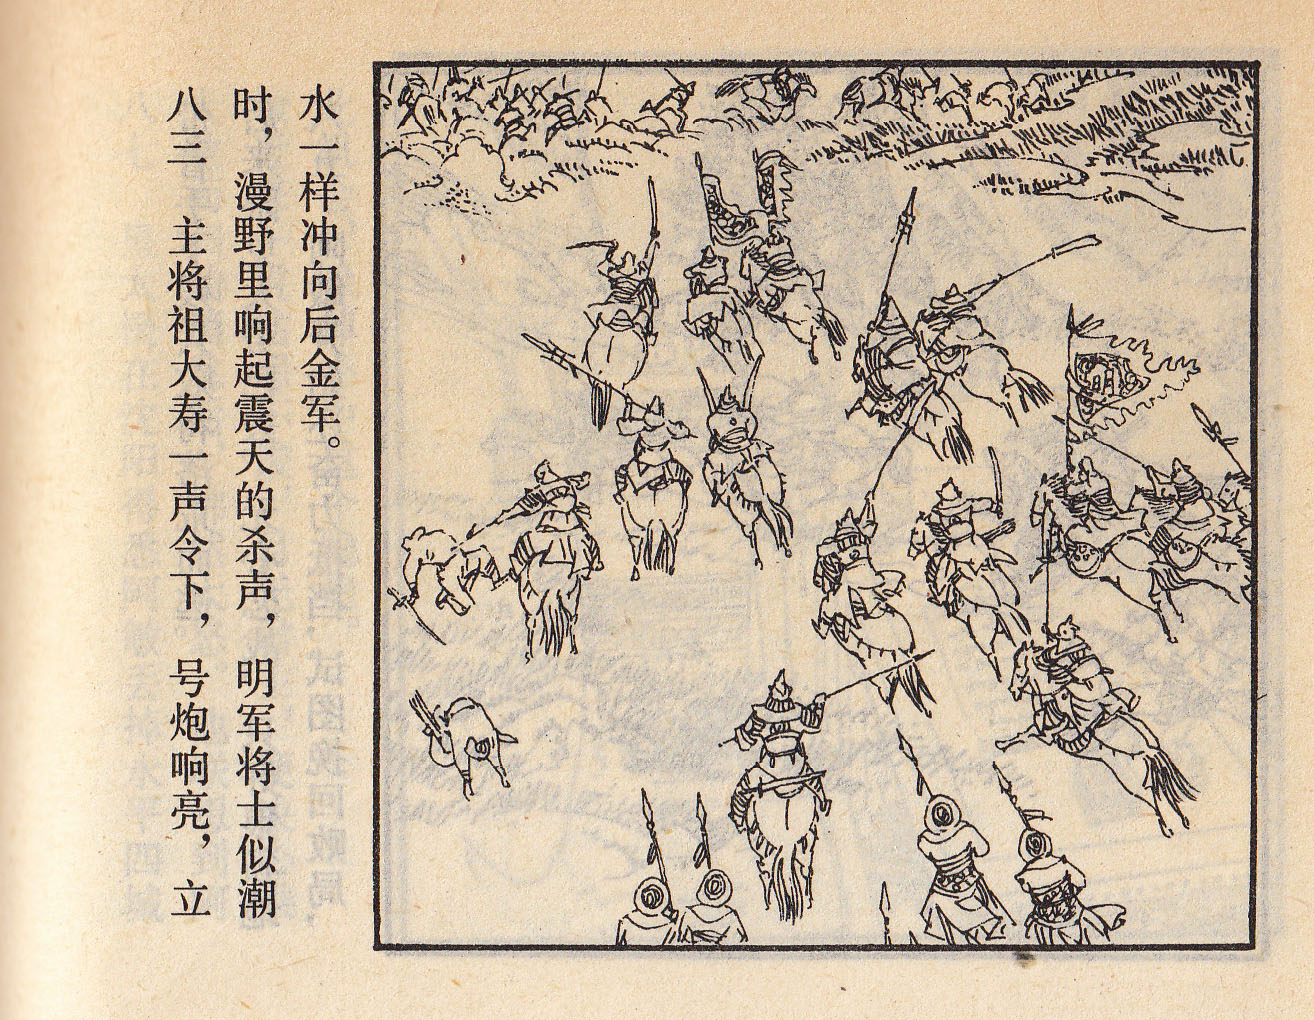 八三　主将祖大寿一声令下，号炮响亮，立
时，漫野里响起震天的杀声，明军将士似潮
水一样冲向后金军。
明